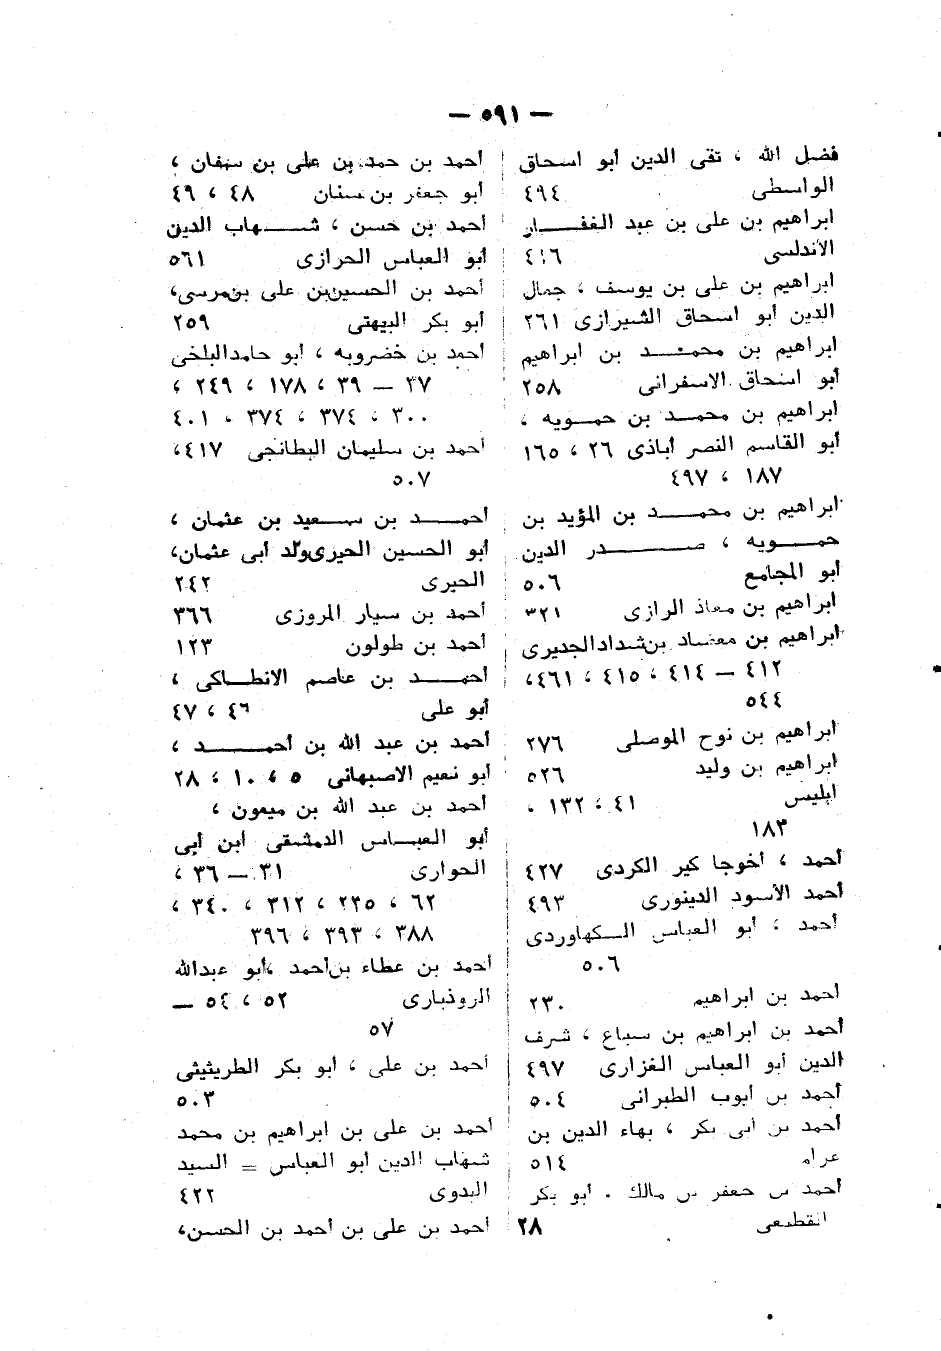 — ٥٩١ —
فضل الله ، تقى الدين أبو اسحاق
الواسطى ٤٩٤
ابراهيم بن على بن عبد الغفار
الأندلسى ٤١٦
ابراهيم بن على بن يوسف ، جمال
الدين أبو اسحاق الشيرازى ٢٦١
ابراهيم بن محمد بن ابراهيم
أبو اسحاق الاسفرانى ٢٥٨
ابراهيم بن محمد بن حمويه ،
أبو القاسم النصر أباذى ٢٦ ، ١٦٥
١٨٧ ، ٤٩٧
ابراهيم بن محمد بن المؤيد بن
حمويه ، صدر الدين
أبو المجامع ٥٠٦
ابراهيم بن معاذ الرازى ٣٢١
ابراهيم بن معضاد بن شداد الجديرى
٤١٢ — ٤١٤ ، ٤١٥ ، ٤٦١ ،
٥٤٤
ابراهيم بن نوح الموصلى ٢٧٦
ابراهيم بن وليد ٥٢٦
ابليس ٤١ ، ١٣٢ ،
١٨٣
أحمد ، أخوجا كير الكردى ٤٢٧
أحمد الأسود الدينورى ٤٩٣
أحمد ، أبو العباس الكهاوردى
٥٠٦
أحمد بن ابراهيم ٢٣٠
أحمد بن ابراهيم بن سباع ، شرف
الدين أبو العباس الفزارى ٤٩٧
أحمد بن أيوب الطبرانى ٥٠٤
أحمد بن أبى بكر ، بهاء الدين بن
عرام ٥١٤
أحمد بن جعفر بن مالك . أبو بكر
القطيعى ٢٨
أحمد بن حمد بن على بن سنان ،
أبو جعفر بن سنان ٤٨ ، ٤٩
أحمد بن حسن ، شهاب الدين
أبو العباس الحرازى ٥٦١
أحمد بن الحسين بن على بن مرسى،
أبو بكر البيهقى ٢٥٩
أحمد بن خضرويه ، أبو حامد البلخى
٣٧ — ٣٩ ، ١٧٨ ، ٢٤٩ ،
٣٠٠ ، ٣٧٤ ، ٣٧٤ ، ٤٠١
أحمد بن سليمان البطائحى ٤١٧،
٥٠٧
أحمد بن سعيد بن عثمان ،
أبو الحسين الحيرى ولد أبى عثمان،
الحيرى ٢٤٢
أحمد بن سيار المروزى ٣٦٦
أحمد بن طولون ١٢٣
أحمد بن عاصم الأنطاكى ،
أبو على ٤٦ ، ٤٧
أحمد بن عبد الله بن أحمد ،
أبو نعيم الأصبهانى ٥ ، ١٠ ، ٢٨
أحمد بن عبد الله بن ميمون ،
أبو العباس الدمشقى ابن أبى
الحوارى ٣١ — ٣٦ ،
٦٢ ، ٢٢٥ ، ٣١٢ ، ٣٤٠ ،
٣٨٨ ، ٣٩٣ ، ٣٩٦
أحمد بن عطاء بن أحمد ، أبو عبدالله
الروذبارى ٥٢ ، ٥٤ —
٥٧
أحمد بن على ، أبو بكر الطريثيثى
٥٠٣
أحمد بن على بن ابراهيم بن محمد
شهاب الدين أبو العباس = السيد
البدوى ٤٢٢
أحمد بن على بن أحمد بن الحسن،